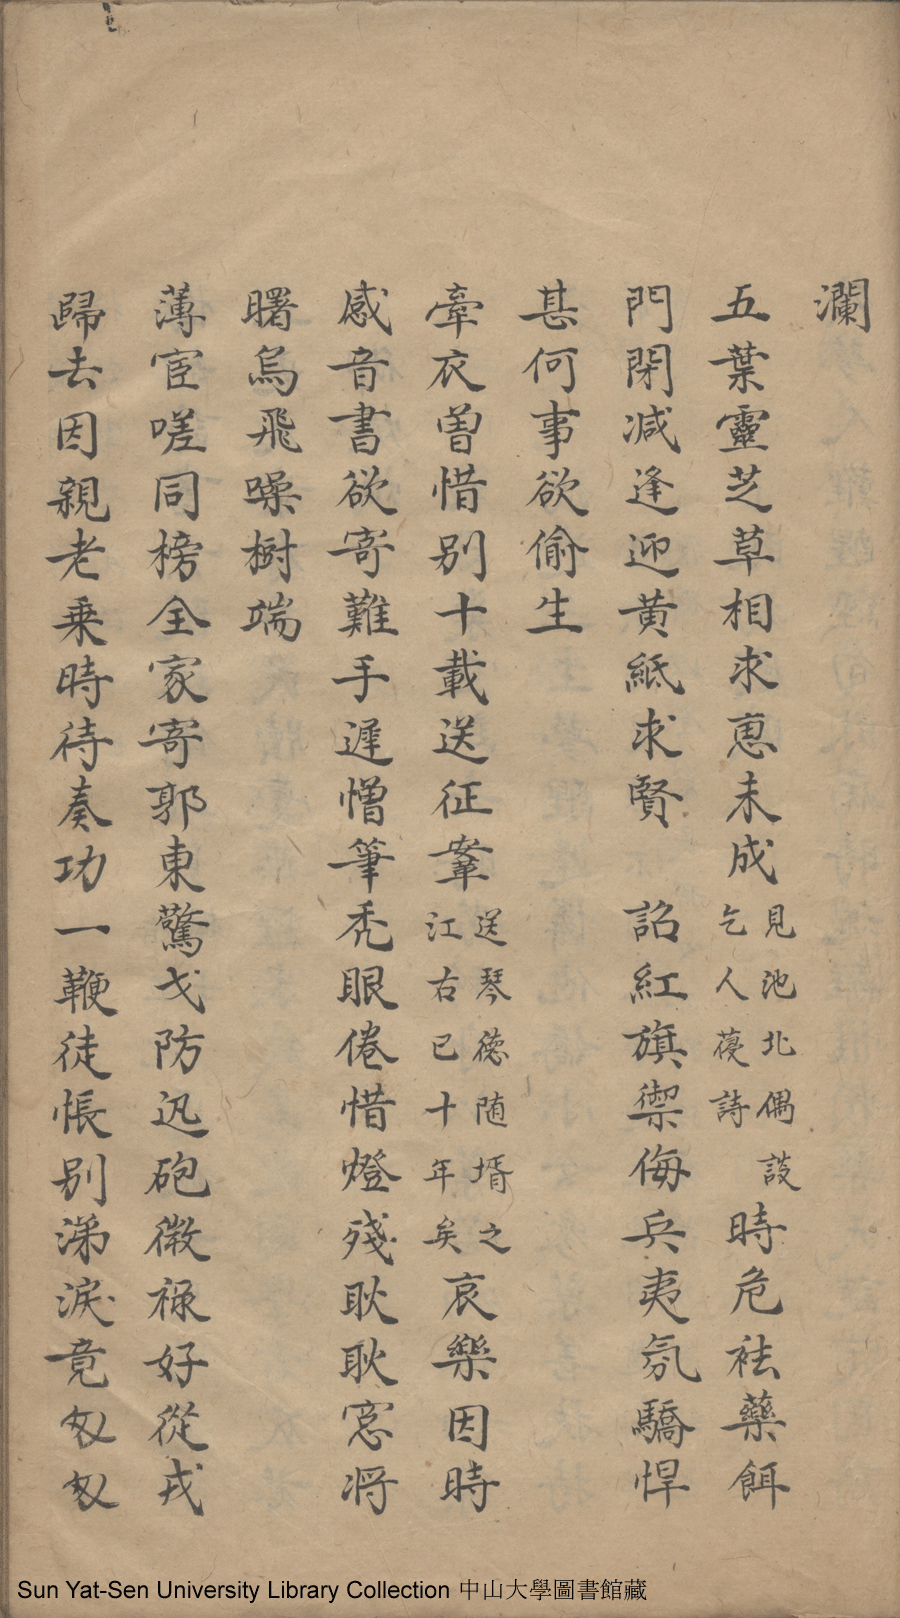 瀾
五葉靈芝草相求恵未成見池北偶談乞人薓詩時危袪藥餌
門閉減逢迎黄紙求賢 詔紅旗禦侮兵夷氛驕悍
甚何事欲偷生
牽衣曾惜别十載送征鞌送琴德随壻之江右已十年矣哀樂因時
感音書欲寄難手遲憎筆秃眼倦惜燈殘耿耿窓将
曙烏飛噪樹端
薄宦嗟同榜全家寄郭東驚戈防迅砲微禄好從戎
歸去因親老乗時待奏功一鞭徒悵别涕淚竟匆匆
Sun Yat-Sen University Library Collection 中山大學圖書館藏